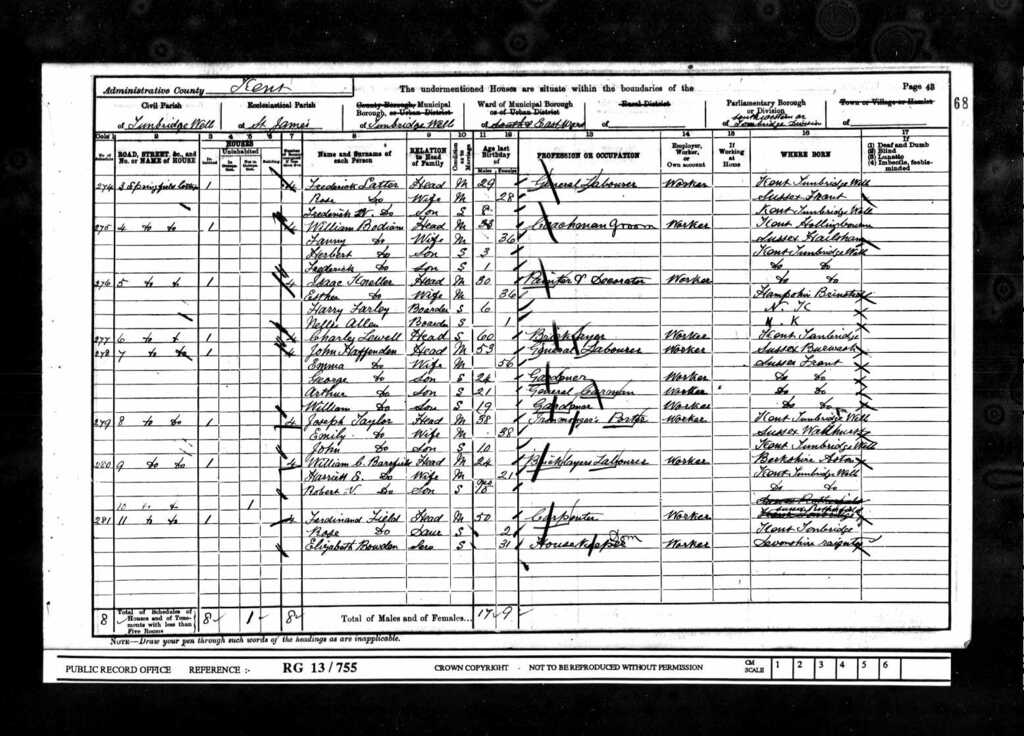 Administrative County Kent The undermentioned Houses are situate within the boundaries of the Page 43
68
Civil Parish Ecclesiastical Parish County Borough, Municipal Borough, or Urban District Ward of Municipal Borough or of Urban District Rural District Parliamentary Borough or Division Town or Village or Hamlet
of Tunbridge Wells of St. James of Tunbridge Wells of South & East Ward of of Tonbridge Division of
Cols 1 2 3 4 5 6 7 8 9 10 11 12 13 14 15 16 17
ROAD, STREET, &c., and No. or NAME of HOUSE HOUSES Uninhabited Name and Surname of each Person RELATION to Head of Family Condition as to Marriage Age last Birthday of Males Females PROFESSION OR OCCUPATION Employer, Worker, or Own account If Working at Home WHERE BORN If (1) Deaf and Dumb (2) Blind (3) Lunatic (4) Imbecile, feeble-minded
274 3 Springfield Cottages 1 4 Frederick Latter Head M 29 General Labourer Worker Kent Tunbridge Well
Rose Do Wife M 28 Sussex Frant
Frederick W. Do Son S 8 Kent Tunbridge Well
275 4 Do Do 1 4 William Bodiam Head M Coachman Groom Worker Kent Hollingbourn
Fanny Do Wife M 36 Sussex Hailsham
Herbert Do Son S 3 Kent Tunbridge Well
Frederick Do Son S 1 Do Do
276 5 Do Do 1 4 Isaac Head M 30 Painter & Decorator Worker Do Do
Esther Do Wife M 36 Hampshire
Harry Farley Boarder S 6 N. K
Nellie Allen Boarder S 1 N. K
277 6 Do Do 1 4 Charley Lowell Head S 60 Bricklayer Worker Kent Tonbridge
278 7 Do Do 1 4 John Haffenden Head M 53 General Labourer Worker Sussex Burwash
Emma Do Wife M 56 Sussex Frant
George Do Son S 24 Gardener Worker Do Do
Arthur Do Son S 21 General Carman Worker Do Do
William Do Son S 19 Gardener Worker Do Do
279 8 Do Do 1 4 Joseph Taylor Head M 38 Ironmonger's Porter Worker Kent Tunbridge Well
Emily Do Wife M 38 Sussex Wadhurst
John Do Son S 10 Kent Tunbridge Well
280 9 Do Do 1 4 William C. Head M 24 Bricklayers Labourer Worker Berkshire
Harriett E. Do Wife M 21 Kent Tunbridge Well
Robert V. Do Son S Do Do
10 Do Do 1
281 11 Do Do 1 4 Ferdinand Field Head M 50 Carpenter Worker
Rose Do Daur S 2 Kent Tonbridge
Elizabeth Bowden Serv S 31 Housekeeper Dom Worker Devonshire
8 Total of Schedules of Houses and of Tenements with less than Five Rooms 8 1 8 Total of Males and of Females... 17 9
NOTE—Draw your pen through such words of the headings as are inapplicable.
PUBLIC RECORD OFFICE REFERENCE :- RG 13/755 CROWN COPYRIGHT - NOT TO BE REPRODUCED WITHOUT PERMISSION CM SCALE 1 2 3 4 5 6